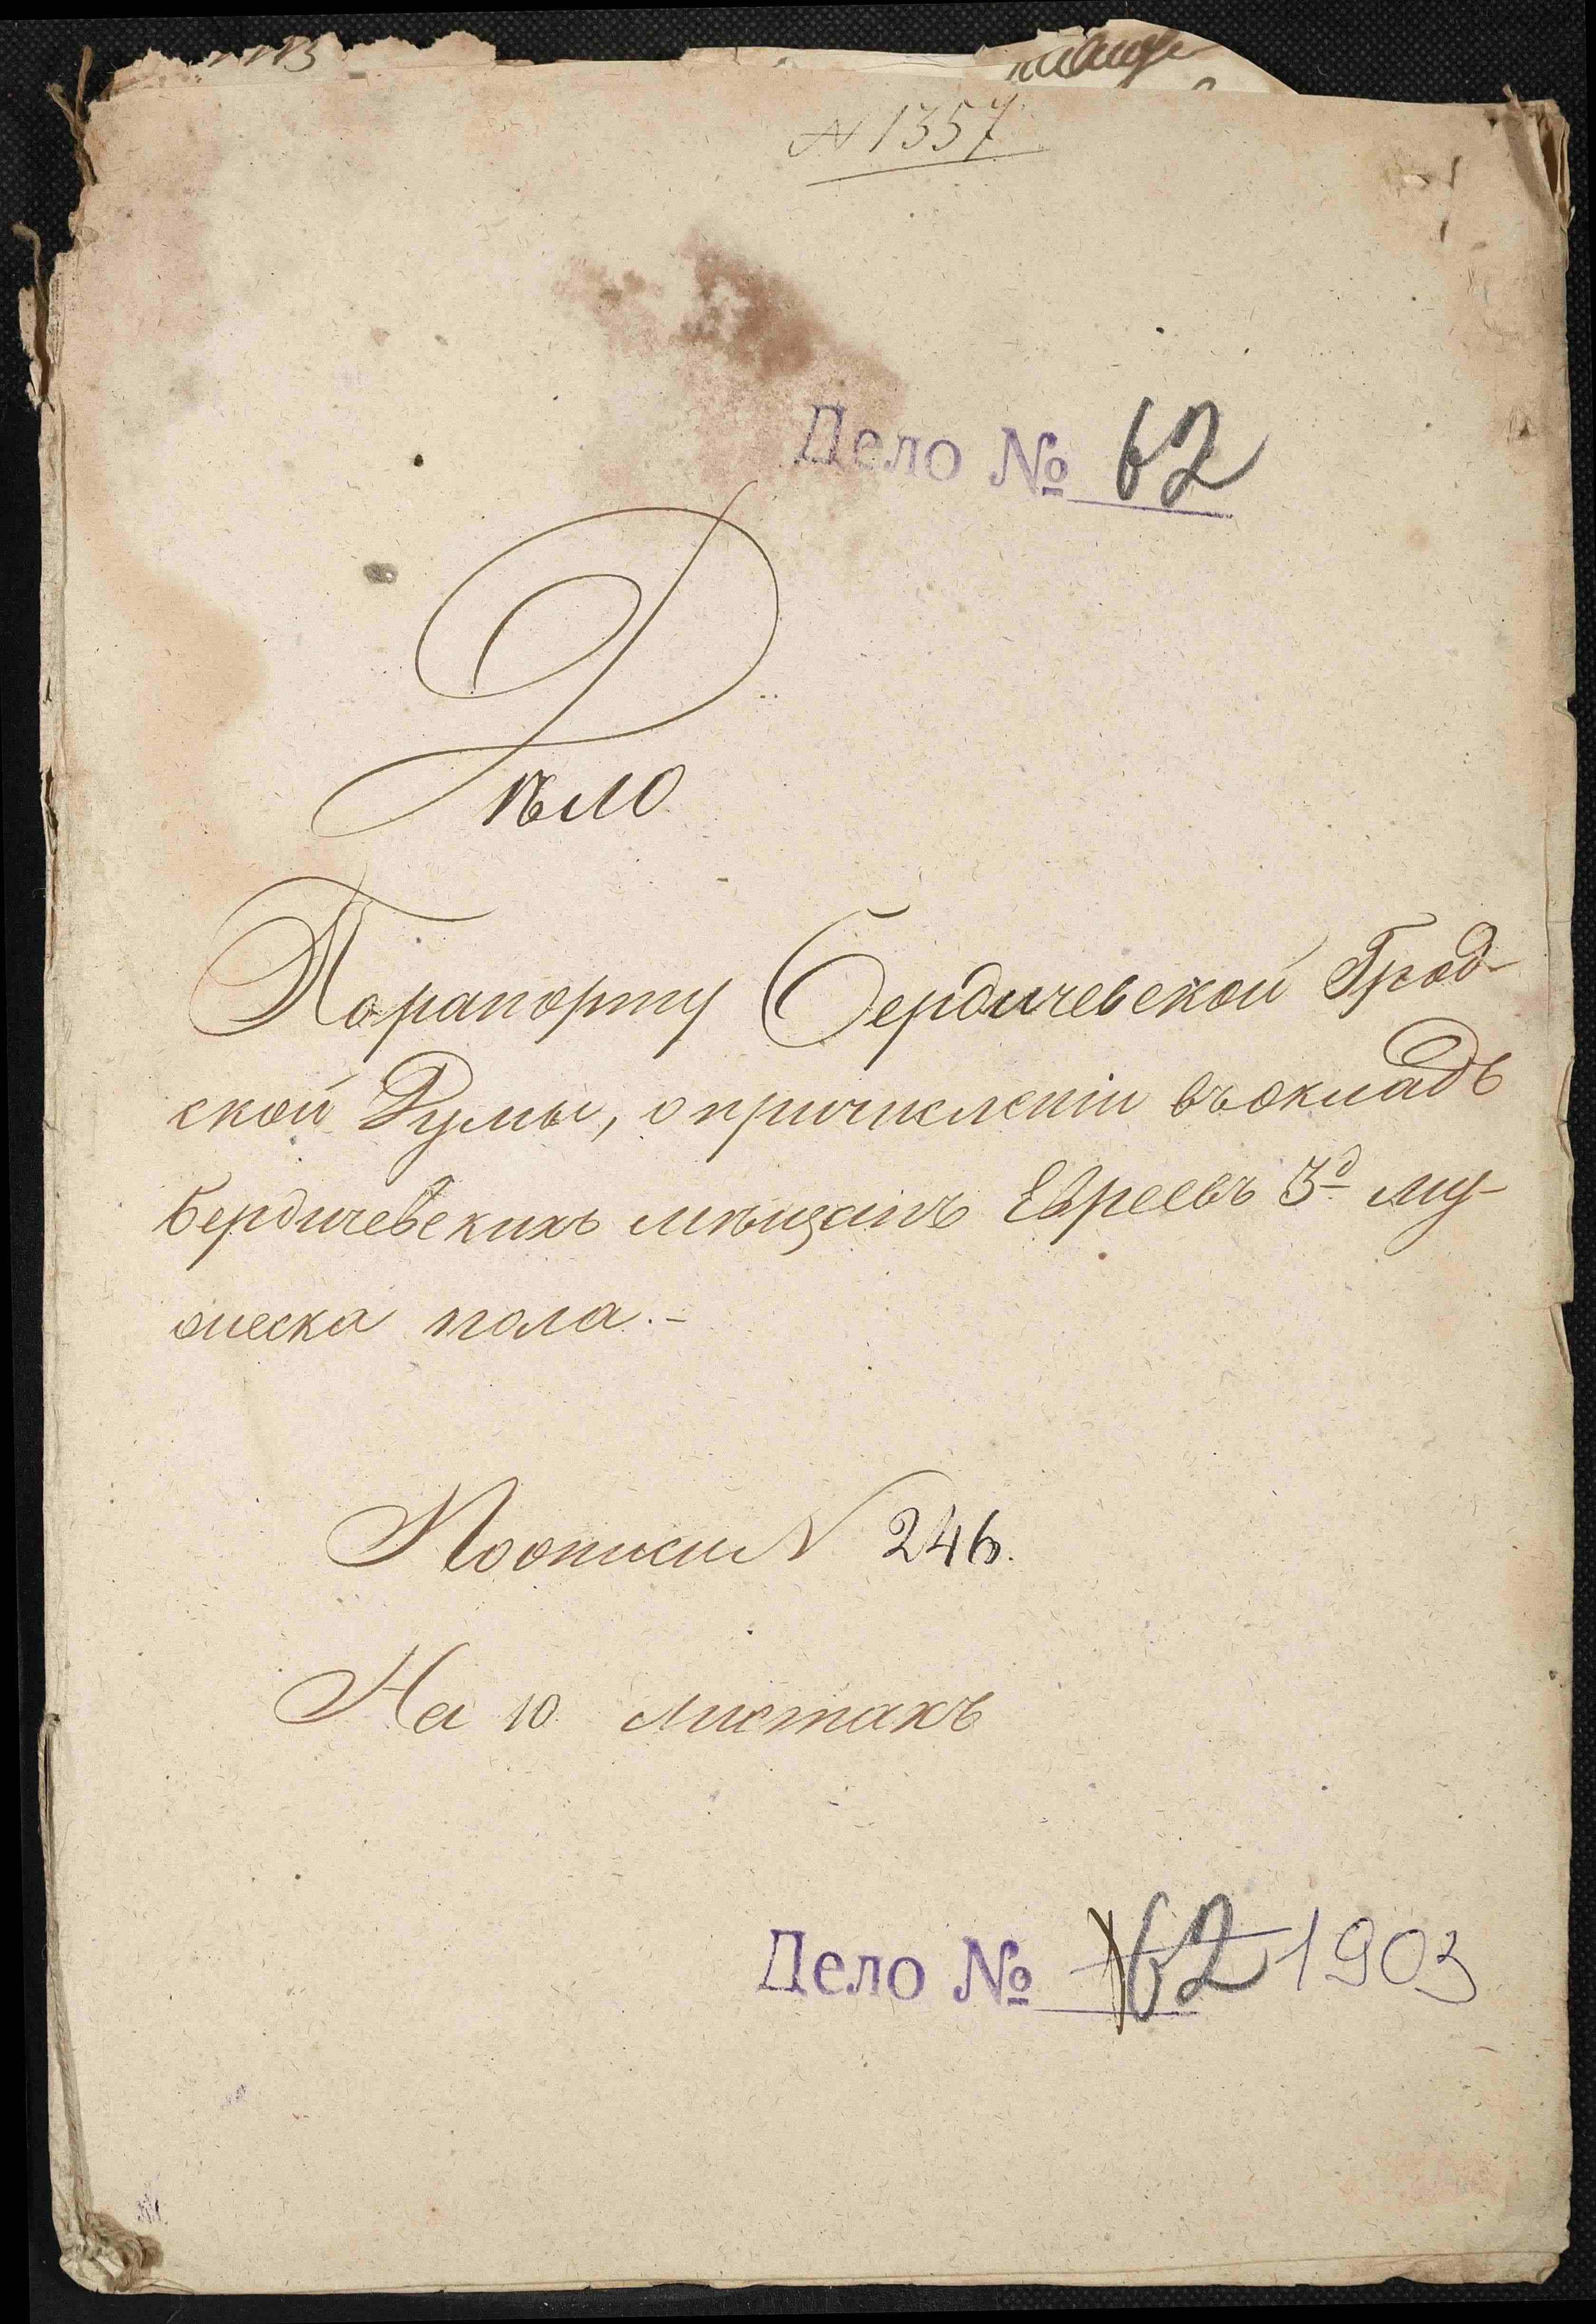 N 1357
Дело № 62
Дѣло
Порапорту Бердичевской Град-
ской Думы, о причисленіи въ окладъ
бердичевскихъ мѣщанъ Евреевъ 3д му-
жеска пола.-
По описи N 246.
На 10 листахъ
Дело № 62 1903